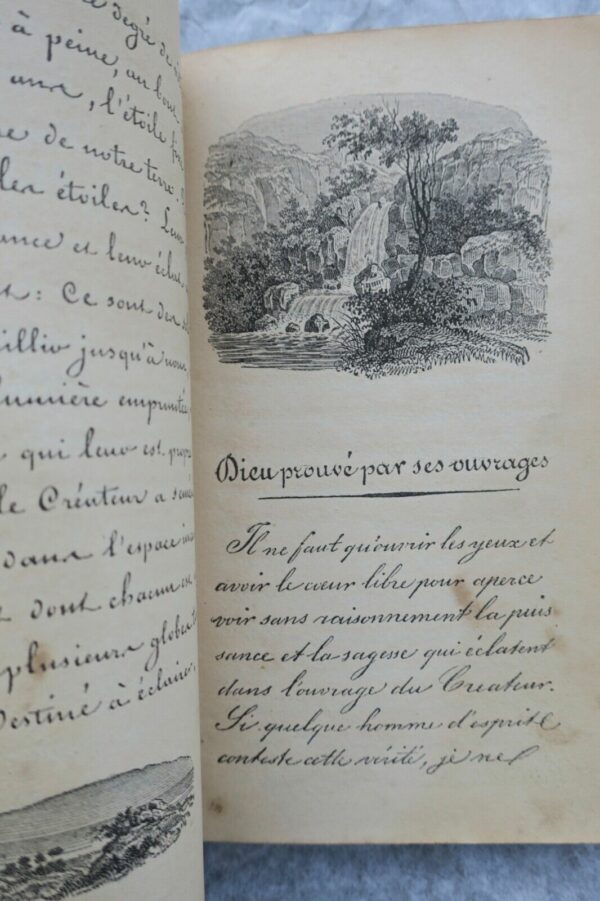 degré de
à peine, au bout
l'étoile
de notre terre.
étoiles? Leur
et leur éclat
: Ce sont des
jusqu'à nous
lumière empruntée
qui leur est propre
le Créateur a semé
dans l'espace
dont chacun est
plusieurs globes
Destiné à éclairer,
Dieu prouvé par ses ouvrages
Il ne faut qu'ouvrir les yeux et
avoir le cœur libre pour aperce
voir sans raisonnement la puis
sance et la sagesse qui éclatent
dans l'ouvrage du Createur.
Si quelque homme d'esprit
conteste cette vérité, je ne